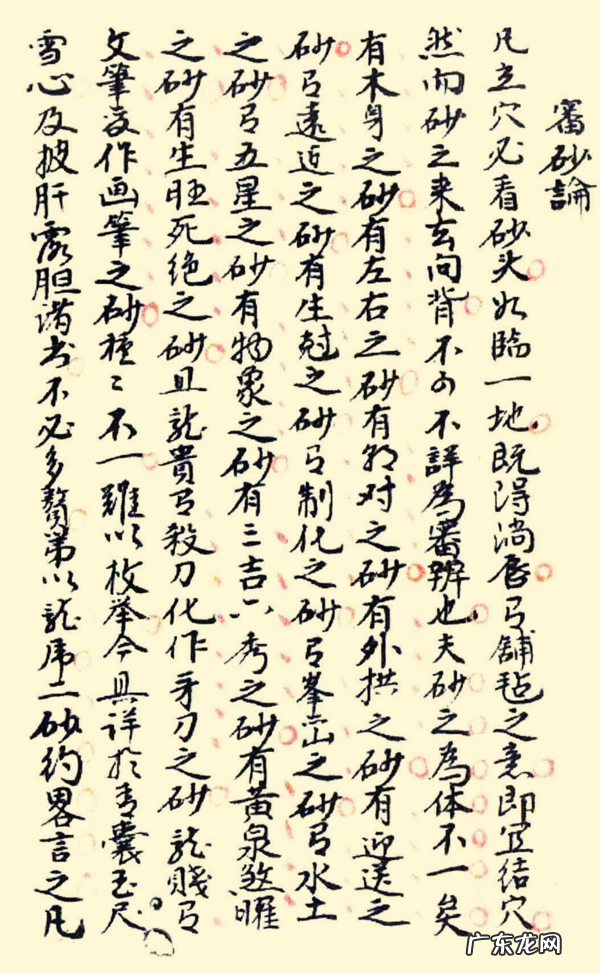 審砂論
凡立穴必看砂头如臨一地既得淌唇弓舖毡之意即宜结穴
然而砂之来去向背不可不詳為審辨也夫砂之為体不一矣
有木身之砂有左右之砂有朝对之砂有外拱之砂有迎送之
砂弓遠近之砂有生尅之砂弓制化之砂弓峯峦之砂弓水土
之砂弓五星之砂有物象之砂有三吉六秀之砂有黃泉煞曜
之砂有生旺死绝之砂且龍貴弓殺刀化作牙刀之砂龍賤弓
文筆变作画筆之砂種〻不一難以枚举今具详於青囊玉尺
雪心及披肝露胆诸书不必多贅第以龍虎二砂约畧言之凡
广东龙网